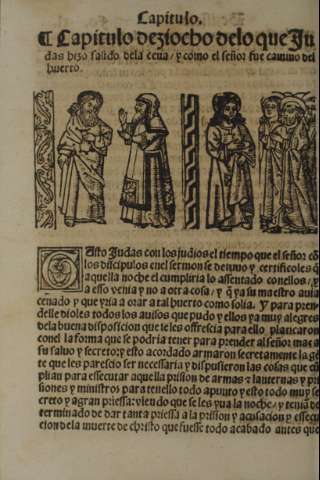 Capitulo.
¶ Capitulo deziocho delo que Ju
das hizo salido dela cena / y como el señor fue camino del
huerto.
Gasto Judas con los judios el tiempo que el señor cō
los discipulos en el sermon se detuuo y certificoles q̄
aquella noche el cumpliria lo assentado conellos / y
a esso venia y no a otra cosa / y q̄ ya su maestro auia
cenado y que yria a orar a tal huerto como solia. Y para pren
delle dioles todos los auisos que pudo y ellos ya muy alegres
dela buena disposicion que se les offrescia para ello platicaron
conel la forma que se podria tener para prender al señor mas a
su saluo y secreto: y esto acordado armaron secretamente la gē
te que les parescio ser necessaria y dispusieron las cosas que cū
plian para essecutar aquella prision de armas & lanternas y pri
siones y ministros para tenello todo apunto y esto todo muy se
creto y a gran priessa: viendo que se les yua la noche / y teniā de
terminado de dar tanta priessa a la prision y acusacion y essecu
cion dela muerte de christo que fuesse todo acabado antes que